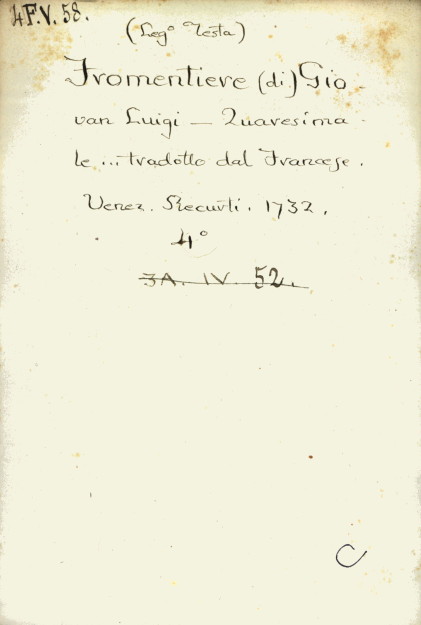 4F.V. 58.
(Leg° Testa)
Fromentiere (di) Gio-
van Luigi — Quaresima-
le ... tradotto dal Francese.
Venez. Recurti. 1732.
4°
3A. IV. 52.
C